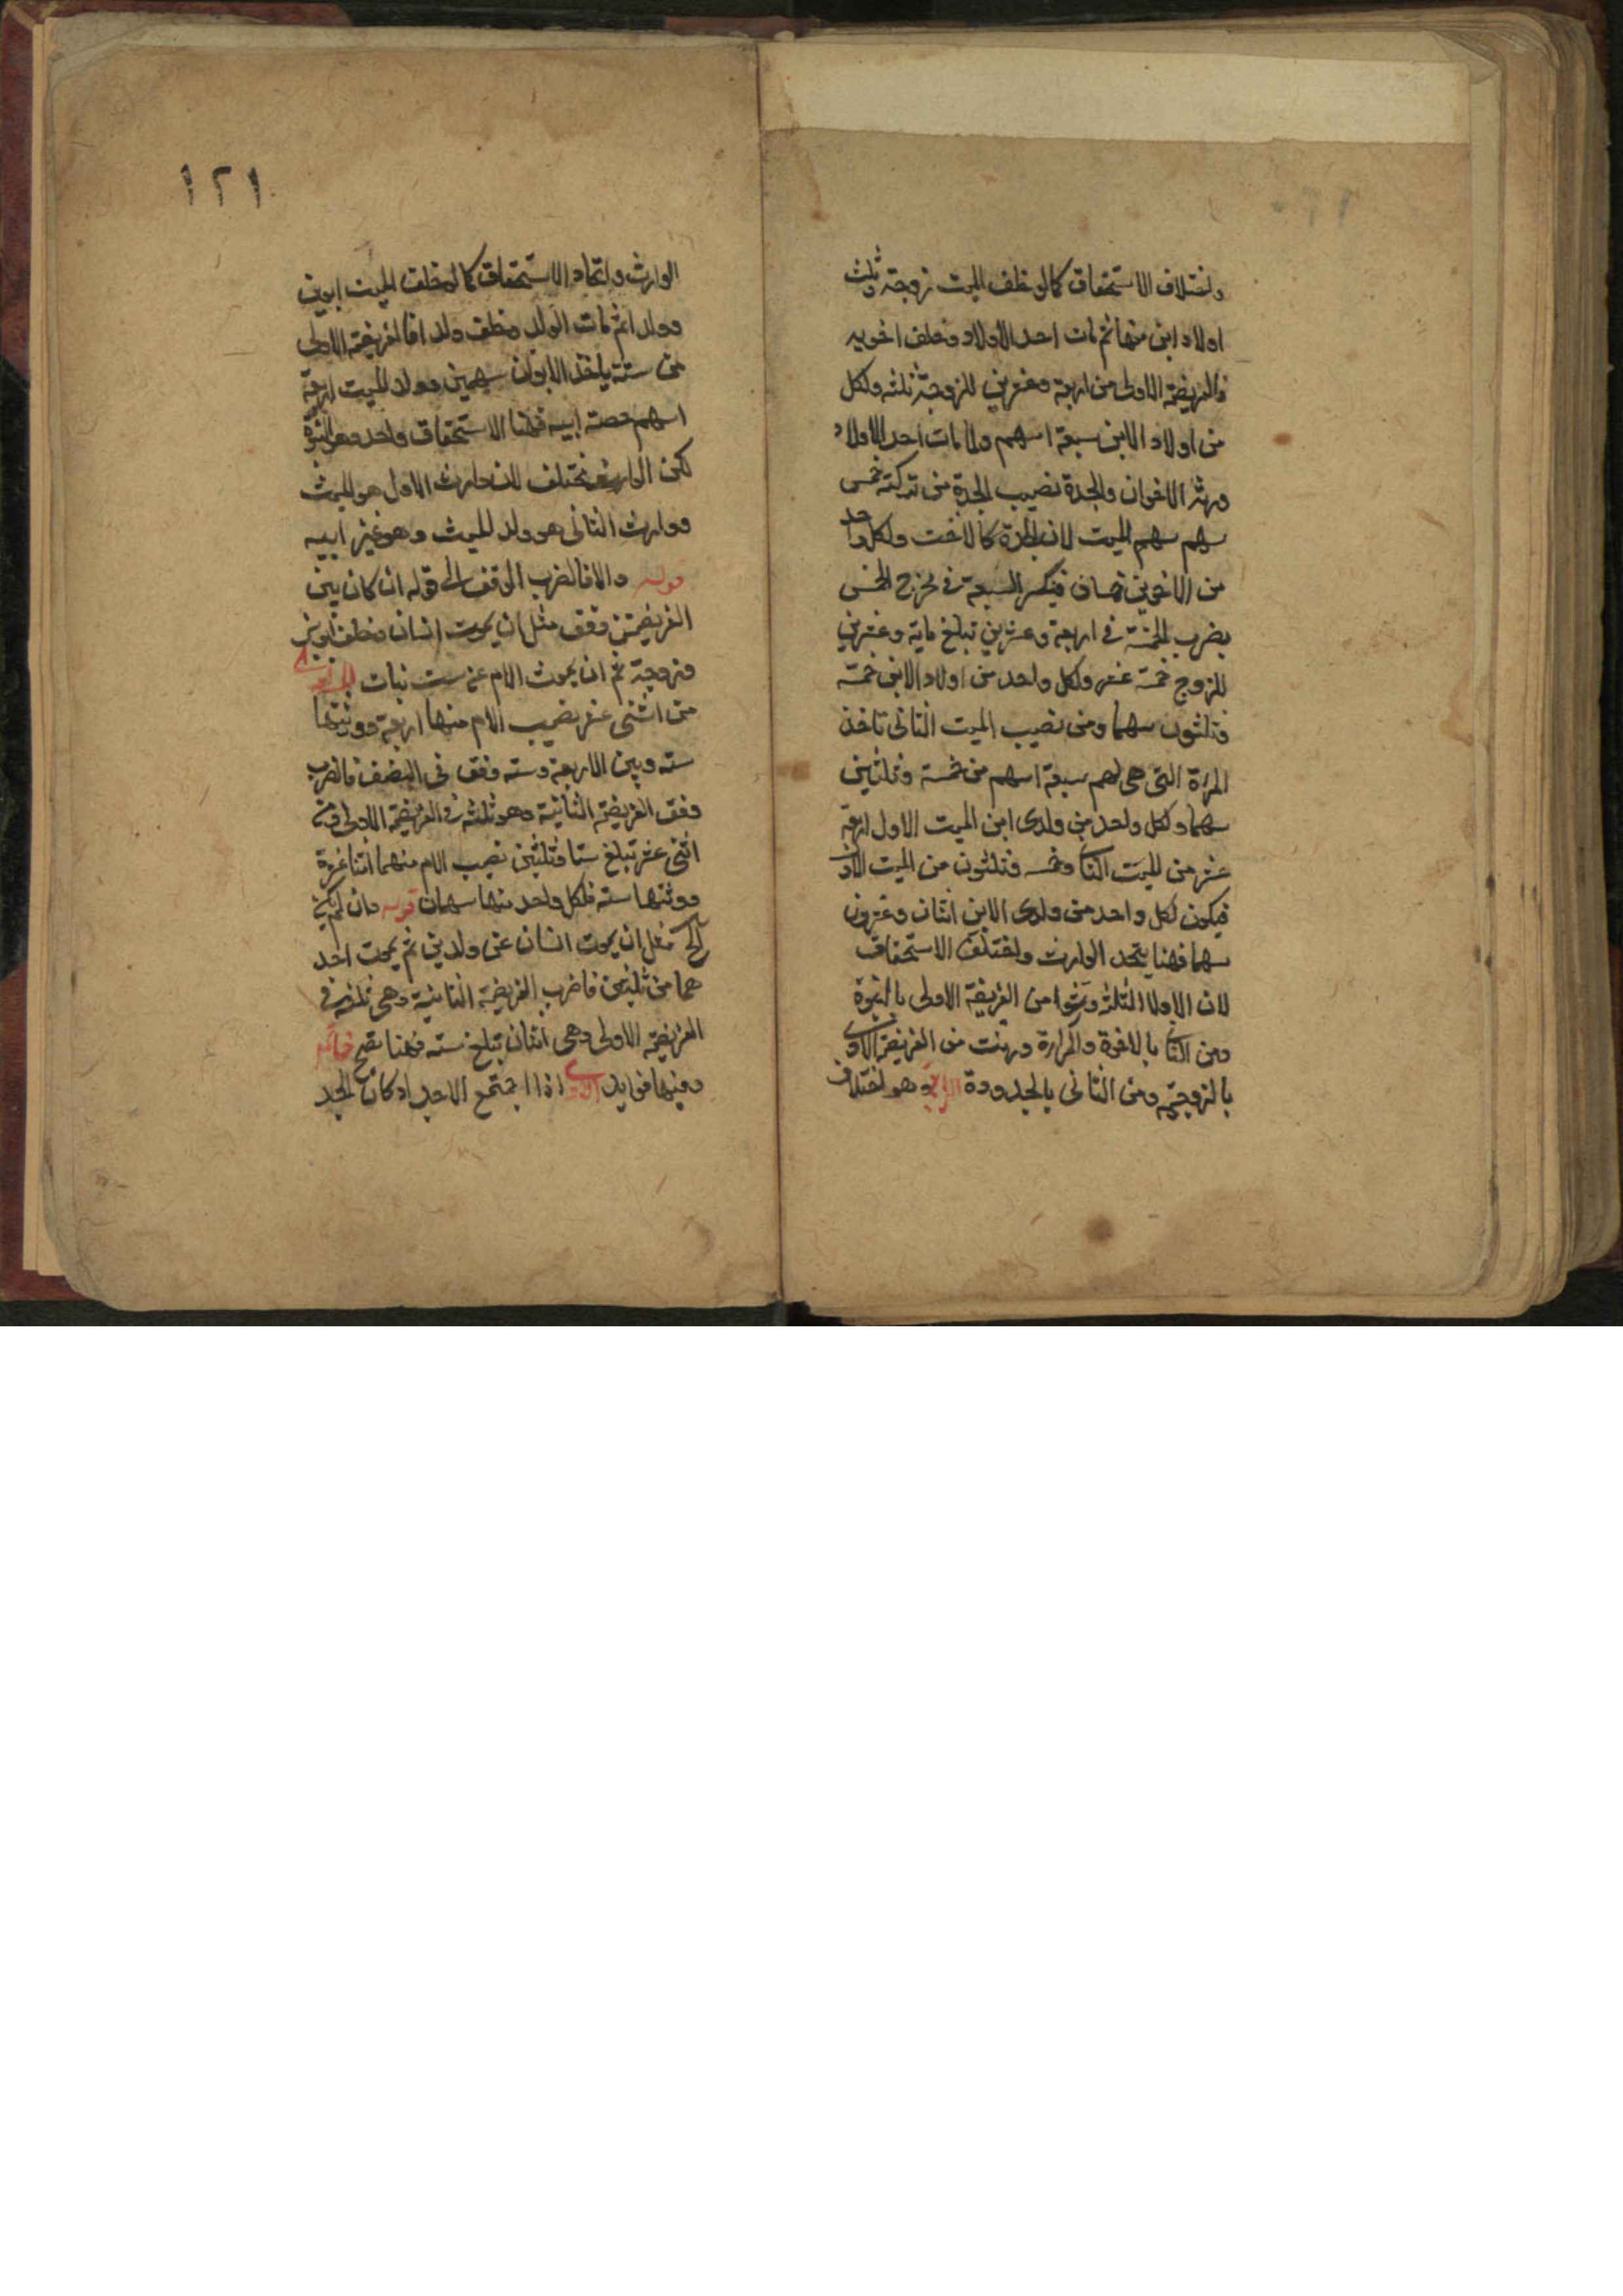 واختلاف الاستحقاق كما لو خلف الميت زوجة وثلث
اولاد ابن منها ثم مات احد الاولاد وخلف اخويه
فالفريضة الاولى من اربعة وعشرين للزوجة ثلثه ولكل
من اولاد الابن سبعة اسهم ولما مات احد الاولاد
ورثه الاخوان والجدة نصيب الجدة من تركته خمس
سهم سهم الميت لان الجدة كالاخت ولكل واحد
من الاخوين خمسان فينكسر السبعة في مخرج الخمس
يضرب الخمسة في اربعة وعشرين تبلغ ماية وعشرين
للزوج خمسة عشر ولكل واحد من اولاد الابن خمسة
وثلثون سهما ومن نصيب الميت الثاني تاخذ
المراة التي هي لهم سبعة اسهم من خمسة وثلثين
سهما ولكل واحد من ولدى ابن الميت الاول اربعة
عشر من الميت الثا وخمسه وثلثون من الميت الاول
فيكون لكل واحد من ولدى الابن اثنان وعشرون
سهما فهنا يتحد الوارث واختلف الاستحقاق
لان الاولاد الثلثة ورثوا من الفريضة الاولى بالبنوة
ومن الثا بالاخوة والمراة ورثت من الفريضة الاولى
بالزوجية ومن الثاني بالجدودة الرابع وهو اختلاف
١٢١
الوارث واتحاد الاستحقاق كما لو خلف الميت ابوين
وولدا ثم مات الولد وخلف ولدا فالفريضة الاولى
من ستة ياخذ الابوان سهمين وولد الميت اربعة
اسهم حصة ابيه فهنا الاستحقاق واحد وهو البنوة
لكن الوارث مختلف لان وارث الاول هو الميت
ووارث الثاني هو ولد الميت وهو غير ابيه
قوله والا فاضرب الوفق الى قوله ان كان بين
الفريضتين وفق مثل ان يموت انسان وخلف ابوين
وزوجة ثم ان يموت الام عن ست بنات الاولى
من اثنى عشر نصيب الام منها اربعة وورثتها
سته وبين الاربعة وسته وفق في النصف فاضرب
وفق الفريضة الثانية وهو ثلثه في الفريضة الاولى وهى
اثنى عشر تبلغ ستا وثلثين نصيب الام منهما اثنا عشرة
وورثتها سته فلكل واحد منها سهمان قوله وان لم يكن
الخ مثل ان يموت انسان عن ولدين ثم يموت احد
هما من ثلثين فاضرب الفريضة الثانية وهى ثلثه في
الفريضة الاولى وهى اثنان تبلغ سته فهنا تصح خاتمه
وفيها فوايد الاولى اذا اجتمع الاجداد كان الجد